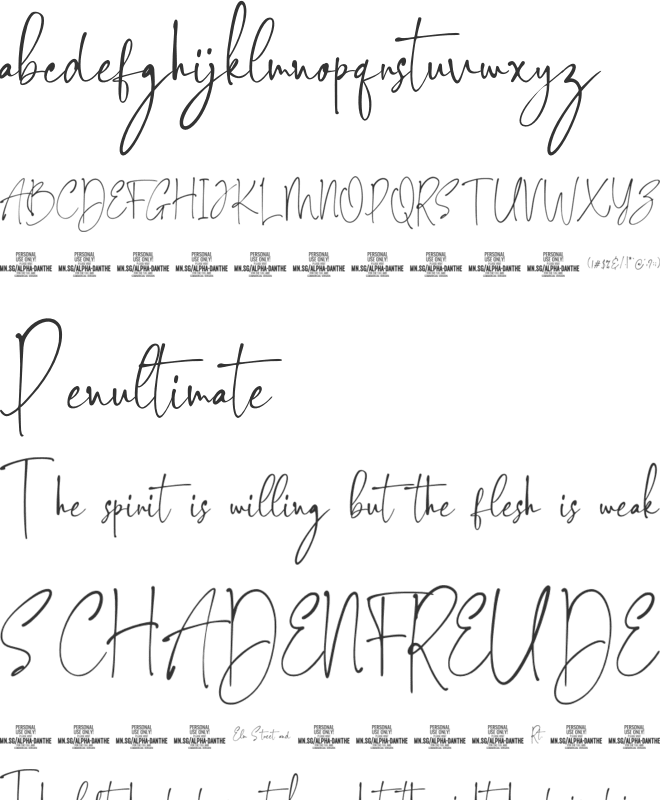 abcdefghijklmnopqrstuvwxyz
ABCDEFGHIJKLMNOPQRSTUVWXYZ
PERSONAL USE ONLY! MN.SG/ALPHA-DANTHE PERSONAL USE ONLY! MN.SG/ALPHA-DANTHE PERSONAL USE ONLY! MN.SG/ALPHA-DANTHE PERSONAL USE ONLY! MN.SG/ALPHA-DANTHE PERSONAL USE ONLY! MN.SG/ALPHA-DANTHE PERSONAL USE ONLY! MN.SG/ALPHA-DANTHE PERSONAL USE ONLY! MN.SG/ALPHA-DANTHE PERSONAL USE ONLY! MN.SG/ALPHA-DANTHE PERSONAL USE ONLY! MN.SG/ALPHA-DANTHE PERSONAL USE ONLY! MN.SG/ALPHA-DANTHE
Penultimate
The spirit is willing but the flesh is weak
SCHADENFREUDE
PERSONAL USE ONLY! MN.SG/ALPHA-DANTHE PERSONAL USE ONLY! MN.SG/ALPHA-DANTHE PERSONAL USE ONLY! MN.SG/ALPHA-DANTHE PERSONAL USE ONLY! MN.SG/ALPHA-DANTHE Elm Street and PERSONAL USE ONLY! MN.SG/ALPHA-DANTHE PERSONAL USE ONLY! MN.SG/ALPHA-DANTHE PERSONAL USE ONLY! MN.SG/ALPHA-DANTHE PERSONAL USE ONLY! MN.SG/ALPHA-DANTHE Rt. PERSONAL USE ONLY! MN.SG/ALPHA-DANTHE PERSONAL USE ONLY! MN.SG/ALPHA-DANTHE